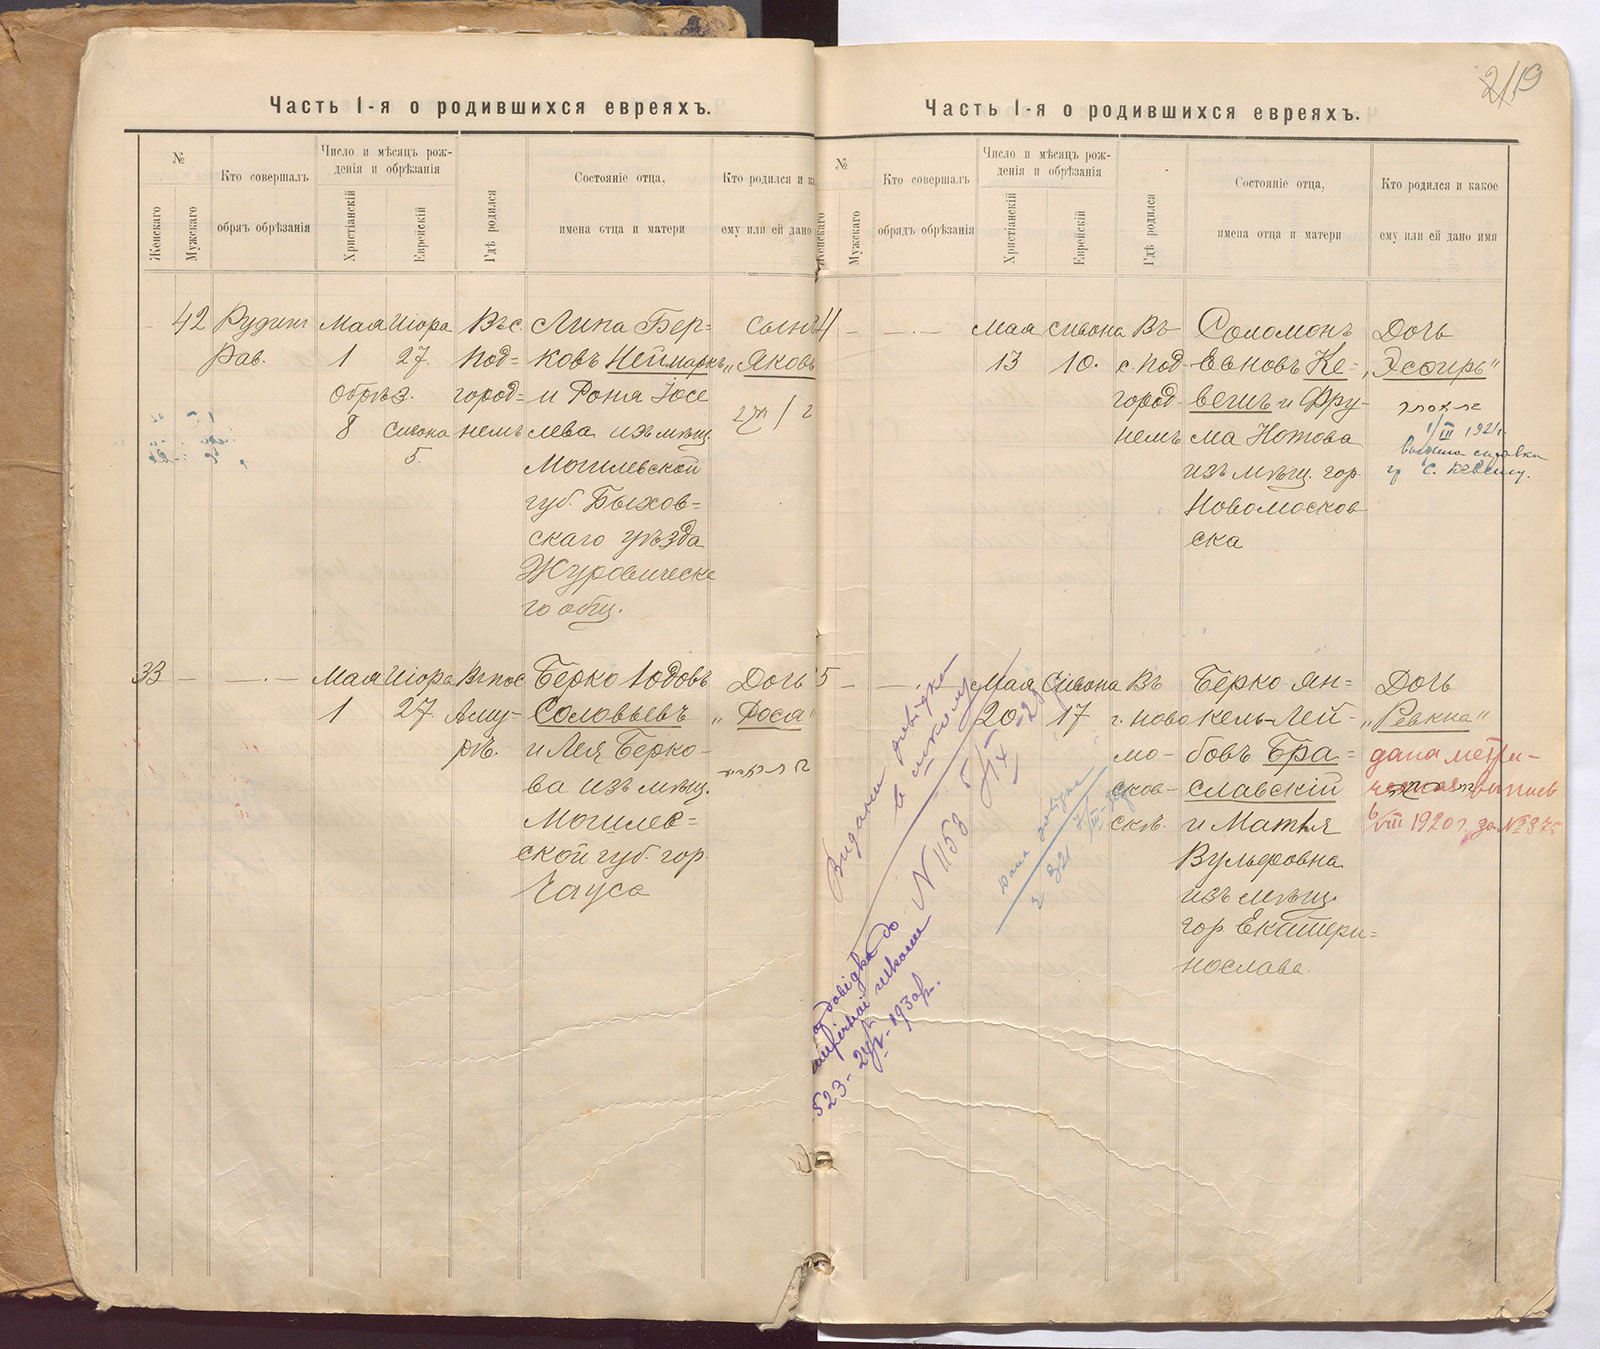 Часть I-я о родившихся евреяхъ.
№
Женскаго
Мужскаго
Кто совершалъ
обрядъ обрѣзанія
Число и мѣсяцъ рож-
денія и обрѣзанія
Христіанскій
Еврейскій
Гдѣ родился
Состояніе отца,
имена отца и матери
Кто родился и ка
ему или ей дано
42
Рудинъ
Рав.
Мая
1
Обрѣз.
8
Иiора
27.
Сивона
5.
Въ с.
Под=
город=
немъ
Липа Бер=
ковъ Неймаркъ
и Роня Іосе
лева изъ мѣщ.
Могилевской
губ. Быхов=
скаго уѣзда
Журовическа
го общ.
Сынъ
„Яковъ
33
Мая
1
Иiора
27.
Въ пос
Аму-
рѣ.
Берко Іодовъ
Соловьевъ
и Лея Берко-
ва изъ мѣщ.
Могилев=
ской губ. гор.
Чауса
Дочь
„Роса"
2/19
Часть I-я о родившихся евреяхъ.
№
Женскаго
Мужскаго
Кто совершалъ
обрядъ обрѣзанія
Число и мѣсяцъ рож-
денія и обрѣзанія
Христіанскій
Еврейскій
Гдѣ родился
Состояніе отца,
имена отца и матери
Кто родился и какое
ему или ей дано имя
4
Мая
13
Сивона
10.
Въ
с. Под-
город-
немъ
Соломонъ
Евновъ Ке-
вешъ и Фру-
ма Нотова
изъ мѣщ. гор.
Новомосков-
ска
Дочь
„Эсфирь"
1/III 1921 г.
справка
гр С. Кевешу.
5
Мая
20
Сивона
17
Въ
г. Ново
мо-
сков-
скѣ.
Берко Ян-
кель-Лей-
бовъ Бра=
славскій
и Матля
Вульфовна
изъ мѣщ.
гор. Екатери=
нослава.
Дочь
„Ревкна"
дана метри-
выпись
6/VIII 1920 г. за № 875
Видани довідка
в школу
N 1153
довідка до
школи
523 - 1930р.